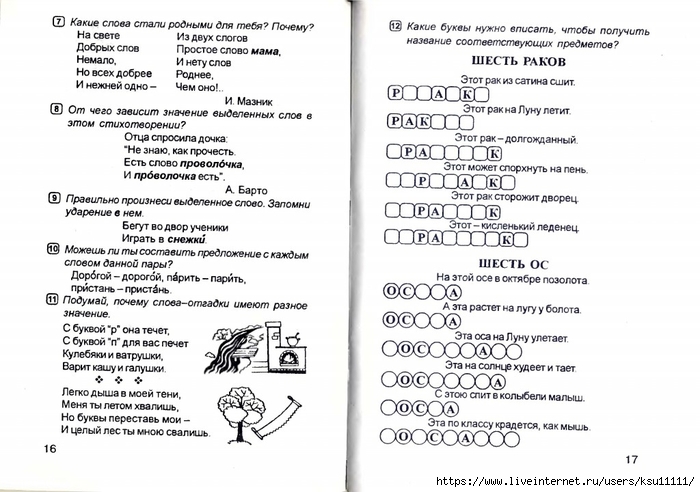 7 Какие слова стали родными для тебя? Почему?
На свете
Добрых слов
Немало,
Но всех добрее
И нежней одно –
Из двух слогов
Простое слово мама,
И нету слов
Роднее,
Чем оно!..
И. Мазник
8 От чего зависит значение выделенных слов в
этом стихотворении?
Отца спросила дочка:
"Не знаю, как прочесть.
Есть слово провóлочка,
И прóволочка есть".
А. Барто
9 Правильно произнеси выделенное слово. Запомни
ударение в нем.
Бегут во двор ученики
Играть в снежки́.
10 Можешь ли ты составить предложение с каждым
словом данной пары?
Доро́гой – дорого́й, па́рить – пари́ть,
при́стань – приста́нь.
11 Подумай, почему слова–отгадки имеют разное
значение.
С буквой "р" она течет,
С буквой "п" для вас печет
Кулебяки и ватрушки,
Варит кашу и галушки.
Легко дыша в моей тени,
Меня ты летом хвалишь,
Но буквы переставь мои –
И целый лес ты мною свалишь.
16
12 Какие буквы нужно вписать, чтобы получить
название соответствующих предметов?
ШЕСТЬ РАКОВ
Этот рак из сатина сшит.
Р А К
Этот рак на Луну летит.
Р А К
Этот рак – долгожданный.
Р А К
Этот может спорхнуть на пень.
Р А К
Этот рак сторожит дворец.
Р А К
Этот – кисленький леденец.
Р А К
ШЕСТЬ ОС
На этой осе в октябре позолота.
О С А
А эта растет на лугу у болота.
О С А
Эта оса на Луну улетает.
О С А
Эта на солнце худеет и тает.
О С А
С этою спит в колыбели малыш.
О С А
Эта по классу крадется, как мышь.
О С А
17
https://www.liveinternet.ru/users/ksu11111/